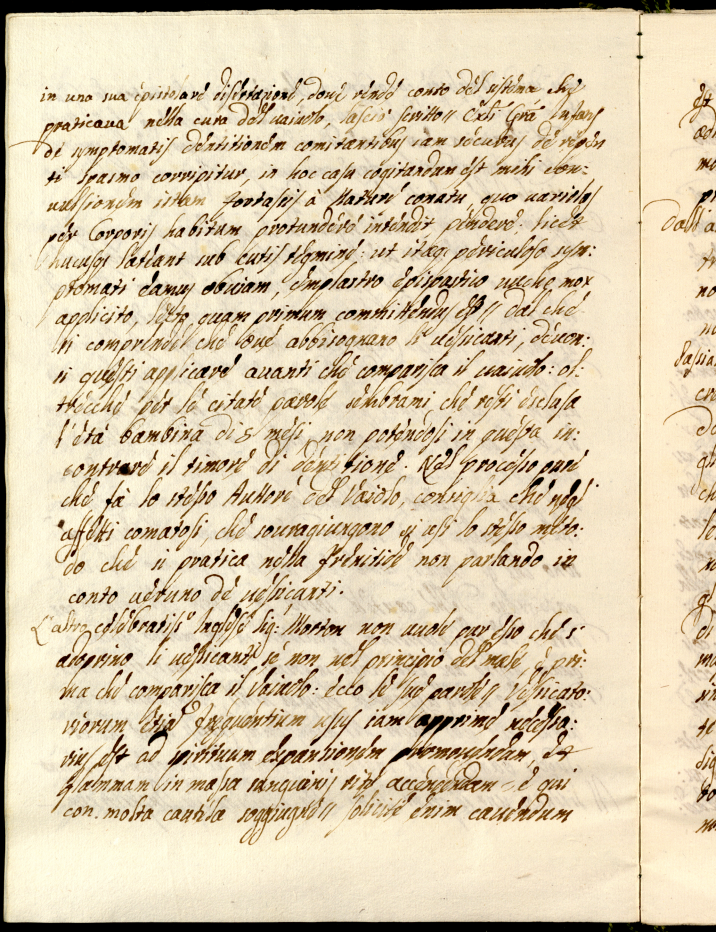 in una sua epistolare disertazione, dove rende conto del sistema che
praticava nella cura del vaiuolo, lasciò scritto // Infans
de symptomatis dentitionem comitantibus iam securus de repen
ti spasmo corripitur, in hoc casu cogitandum est mihi con-
vulsionem istam fortassis à Naturæ conatu, quo variolas
per Corporis habitum protundere intendit pendere: licet
hucusq; lateant sub cutis tegmine: ut itaq; periculoso sym:
ptomati eamus obuiam, emplastro epispastico nuchæ mox
applicito, lecto quam primum committendus est // dal che
si comprende che ove abbisognano li uessicanti, deuon:
si questi applicare auanti che comparisca il uaiuolo: ol:
trecche per le citate parole sembrami che resti esclusa
l'età bambina di 5 mesi non potendosi in questa in:
contrare il timore di dentitione. Nel processo pure
che fà lo stesso Auttore del Vaiolo, consiglia che negl'
affetti comatosi, che souragiungono si usi lo stesso meto:
do che si pratica nella frenitide non parlando in
conto ueruno de uessicanti.
L'altro celebratiss.º Inglese Sig: Morton non uuole pur esso che s'
adoprino li uessicanti se non nel principio del male, e pri:
ma che comparisca il Vaiuolo: ecco le sue parole // Vessicato:
riorum etiã frequentium usus iam apprime necessa:
rius est ad spirituum expansionem promouendam, et
flammam in massa sanguinis rite accendendam = e qui
con molta cautela soggiugne // solicite enim cauendum